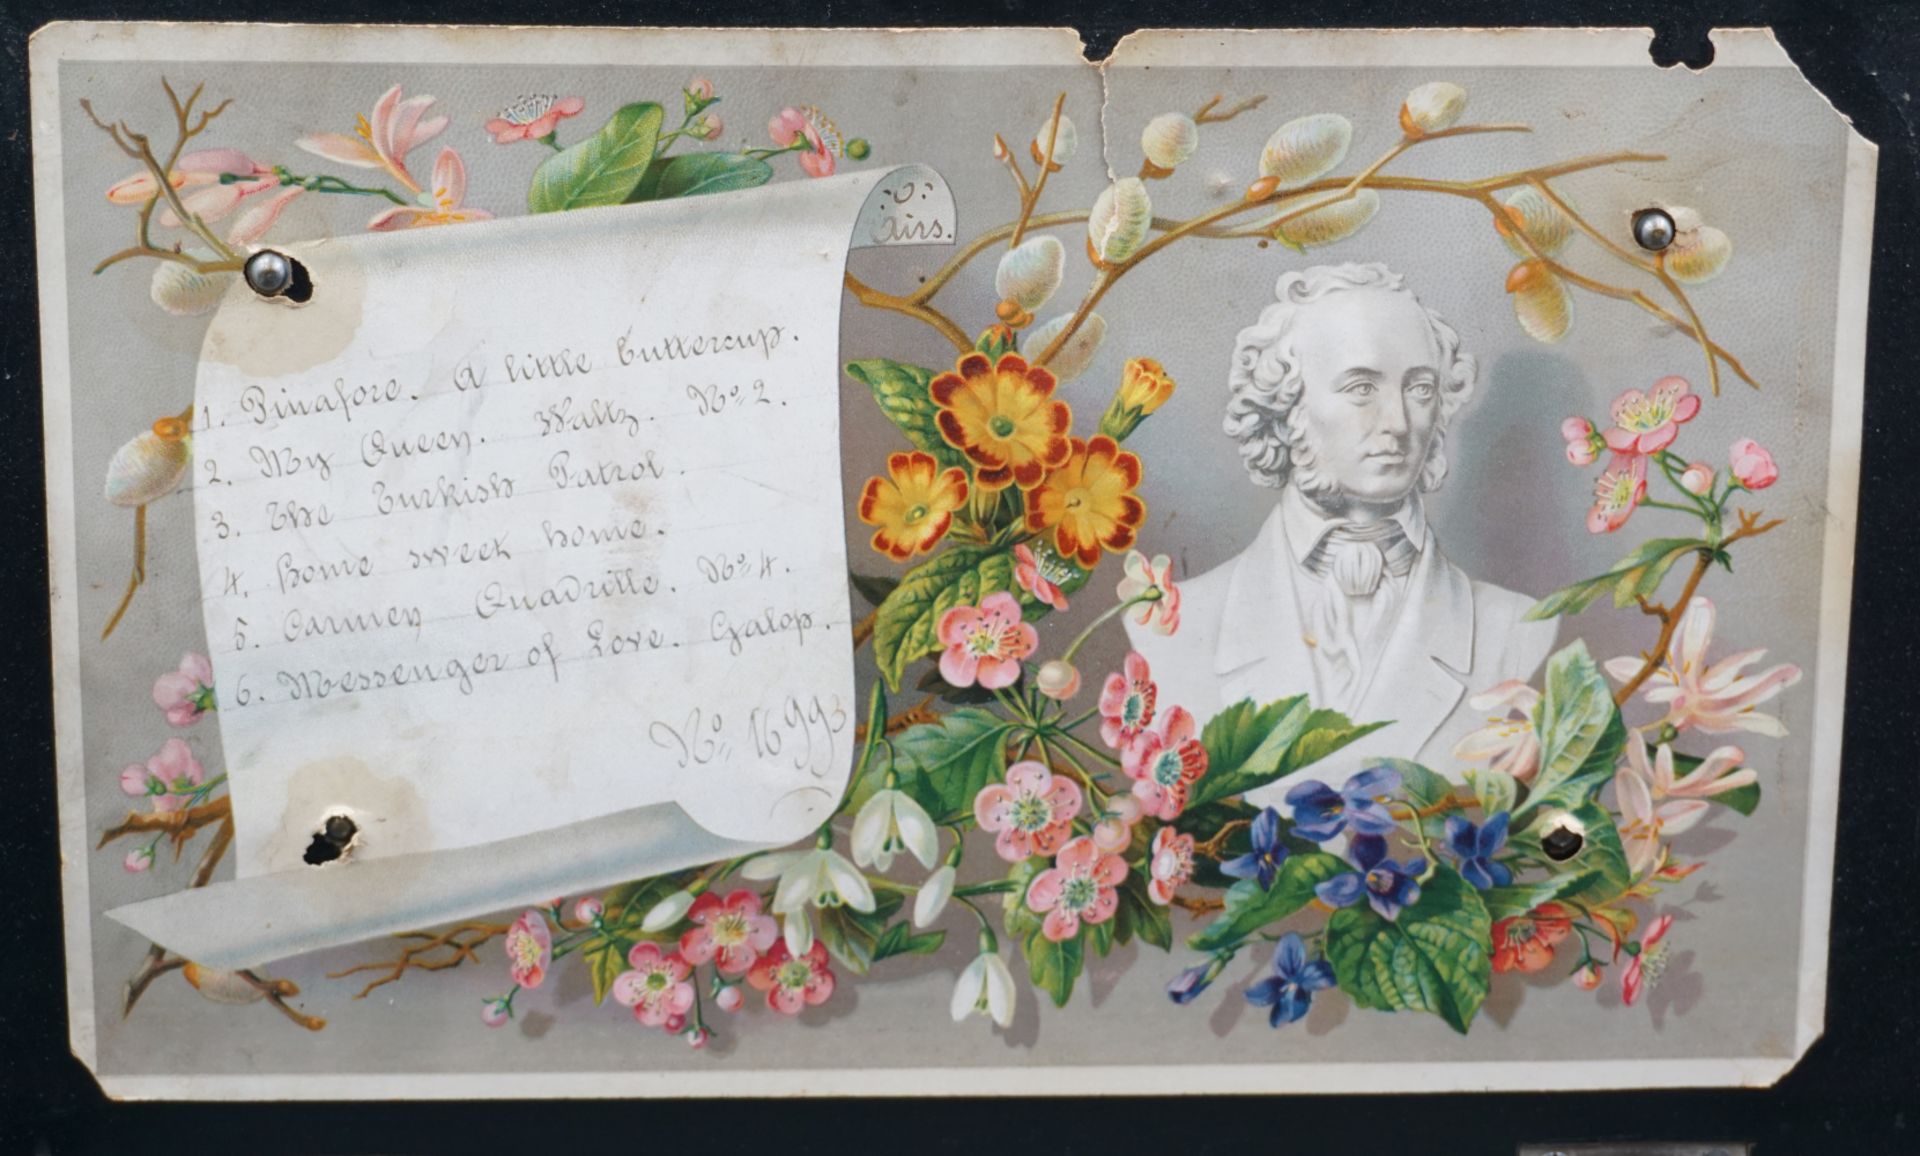 :6:
Airs.
1. Pinafore. A little buttercup.
2. My Queen. Waltz. No 2.
3. The Turkish Patrol.
4. home sweet home.
5. Carmen Quadrille. No 4.
6. Messenger of Love. Galop.
No 16993